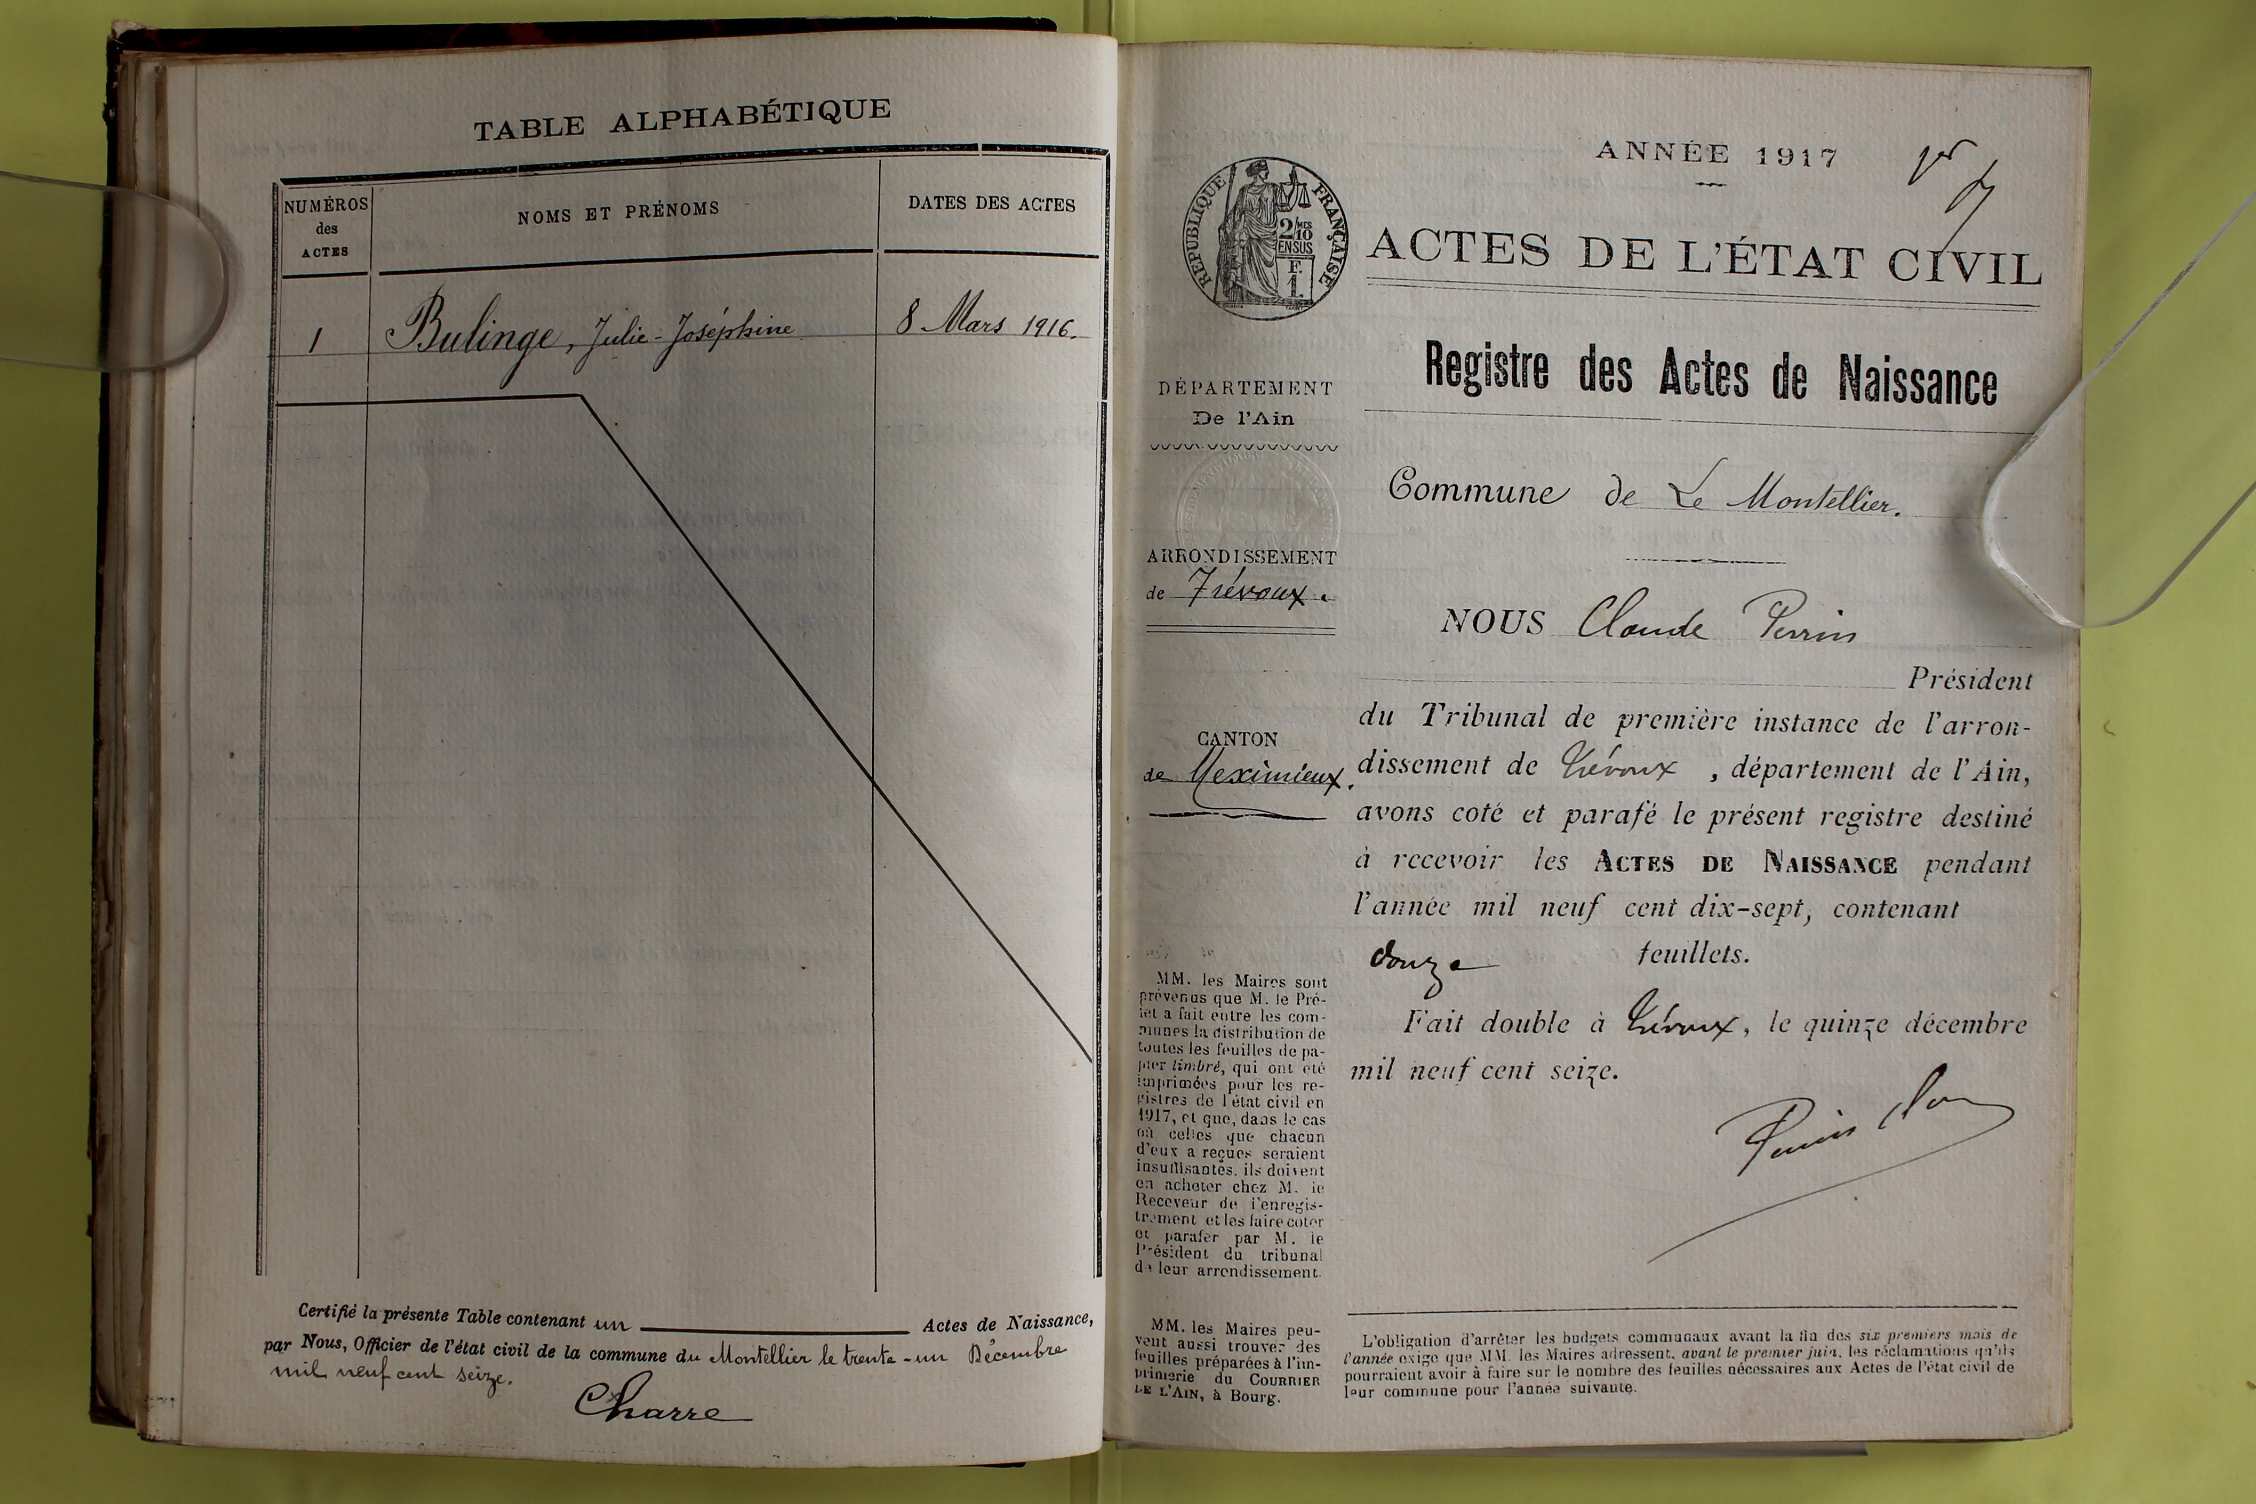 TABLE ALPHABÉTIQUE
NUMÉROS
des
ACTES
NOMS ET PRÉNOMS
DATES DES ACTES
1 Bulinge, Julie-Joséphine 8 Mars 1916.
Certifié la présente Table contenant un Actes de Naissance,
par Nous, Officier de l'état civil de la commune du Montellier le trente-un Décembre
mil neuf cent seize.
Charre
ANNÉE 1917
RÉPUBLIQUE FRANÇAISE
2/10MES
EN SUS
F.
1.
ACTES DE L'ÉTAT CIVIL
Registre des Actes de Naissance
DÉPARTEMENT
De l'Ain
ARRONDISSEMENT
de Trévoux.
CANTON
de Meximieux.
MM. les Maires sont
prévenus que M. le Pré-
fet a fait entre les com-
munes la distribution de
toutes les feuilles de pa-
pier timbré, qui ont été
imprimées pour les re-
gistres de l'état civil en
1917, et que, dans le cas
où celles que chacun
d'eux a reçues seraient
insuffisantes, ils doivent
en acheter chez M. le
Receveur de l'enregis-
trement et les faire coter
et parafer par M. le
Président du tribunal
de leur arrondissement.
MM. les Maires peu-
vent aussi trouver des
feuilles préparées à l'im-
primerie du COURRIER
DE L'AIN, à Bourg.
Commune de Le Montellier.
NOUS Claude Perrin
Président
du Tribunal de première instance de l'arron-
dissement de Trévoux, département de l'Ain,
avons coté et parafé le présent registre destiné
à recevoir les ACTES DE NAISSANCE pendant
l'année mil neuf cent dix-sept, contenant
douze feuillets.
Fait double à Trévoux, le quinze décembre
mil neuf cent seize.
L'obligation d'arrêter les budgets communaux avant la fin des six premiers mois de
l'année exige que MM. les Maires adressent, avant le premier juin, les réclamations qu'ils
pourraient avoir à faire sur le nombre des feuilles nécessaires aux Actes de l'état civil de
leur commune pour l'année suivante.